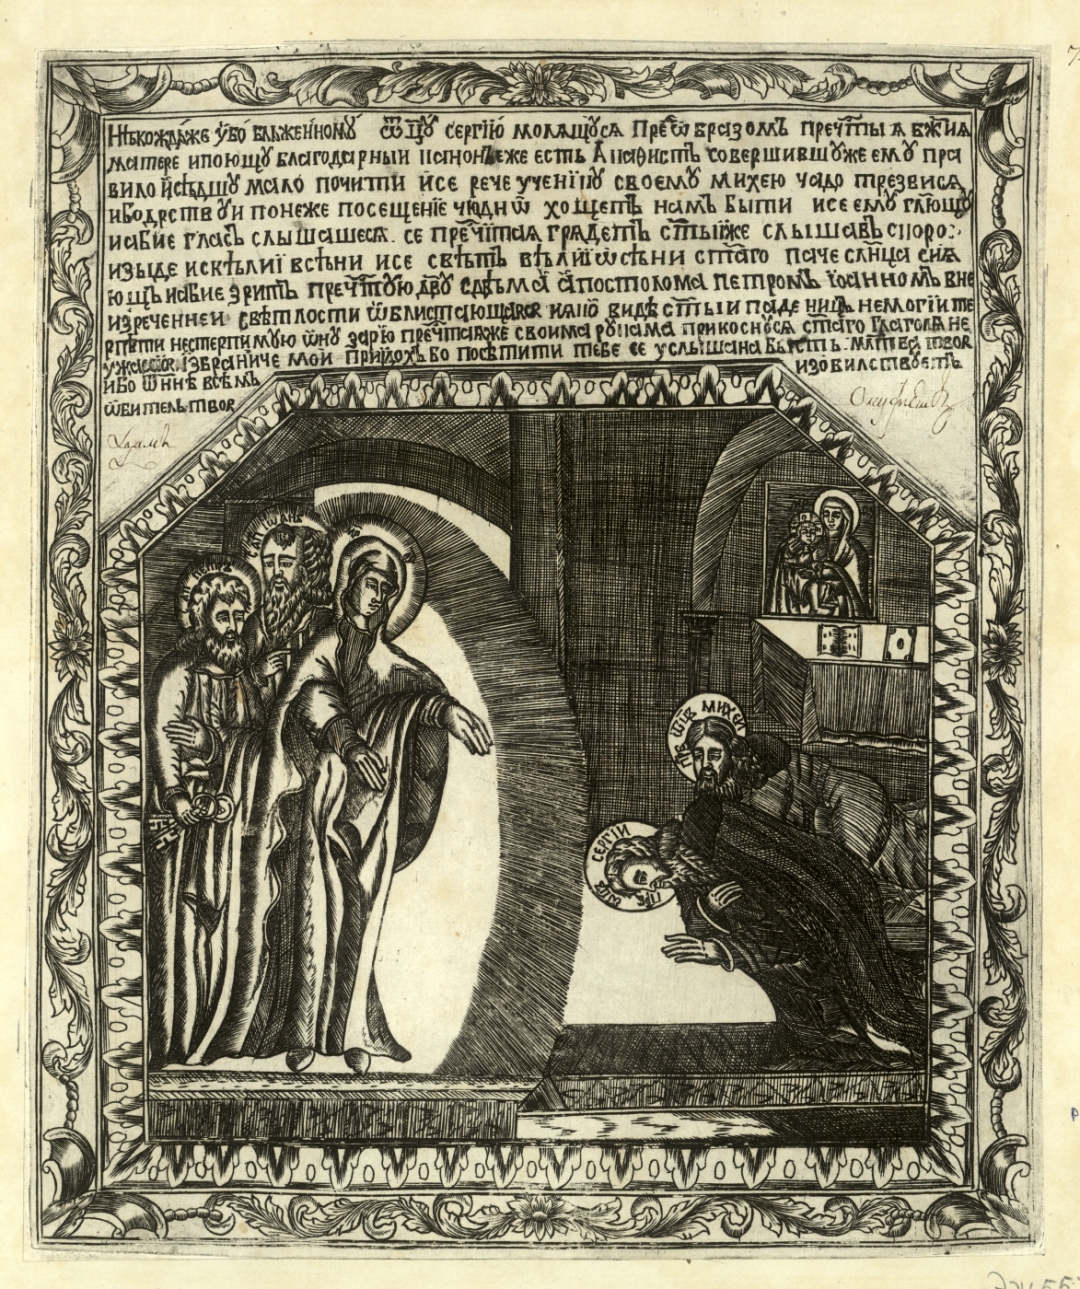 Нѣкождаже ѹбо блаженномѹ ѿцѹ сергїю молѧщѹсѧ Преѡбразомъ пречт҃ыѧ бж҃иѧ
матере ипоющѹ благодарныи канонъ еже есть Акаѳистъ совершившѹже емѹ пра
вило исѣдшѹ мало почити исе рече ѹченикѹ своемѹ михею чадо трезвисѧ
ибодрствѹи понеже посещенїе чюдно хощетъ намъ быти исе емѹ гл҃ющѹ
иабие гласъ слышашесѧ. се преч҃таѧ грѧдетъ ст҃ыиже слышавъ скоро
изыде искѣлиї всѣни исе свѣтъ вѣлиї ѡсѣни ст҃аго паче слн҃ца сиѧ
ющъ иабие зритъ преч҃тѹю дв҃ѹ сдвѣма апостолома петромъ иоанномъ вне
изреченнеи свѣтлости ѡблистающасѧ икако видѣ ст҃ыи паде ницъ немогїи те
рпѣти нестерпимѹю ѡнѹ зарю преч҃таѧже своима рѹкама прикоснѹсѧ ст҃аго глаголѧ не
ѹжасаисѧ ізбраниче мои приидохъ бо посѣтити тебе се ѹслышана бысть млт҃ва твоѧ
ибо ѿнн҃ѣ всѣмъ изобилствѹетъ
ѡбитель твоѧ
ст҃ы петръ
ст҃ы иоанъ
прп҃ѡбъ михеи
прп҃ѡбъ сергїи